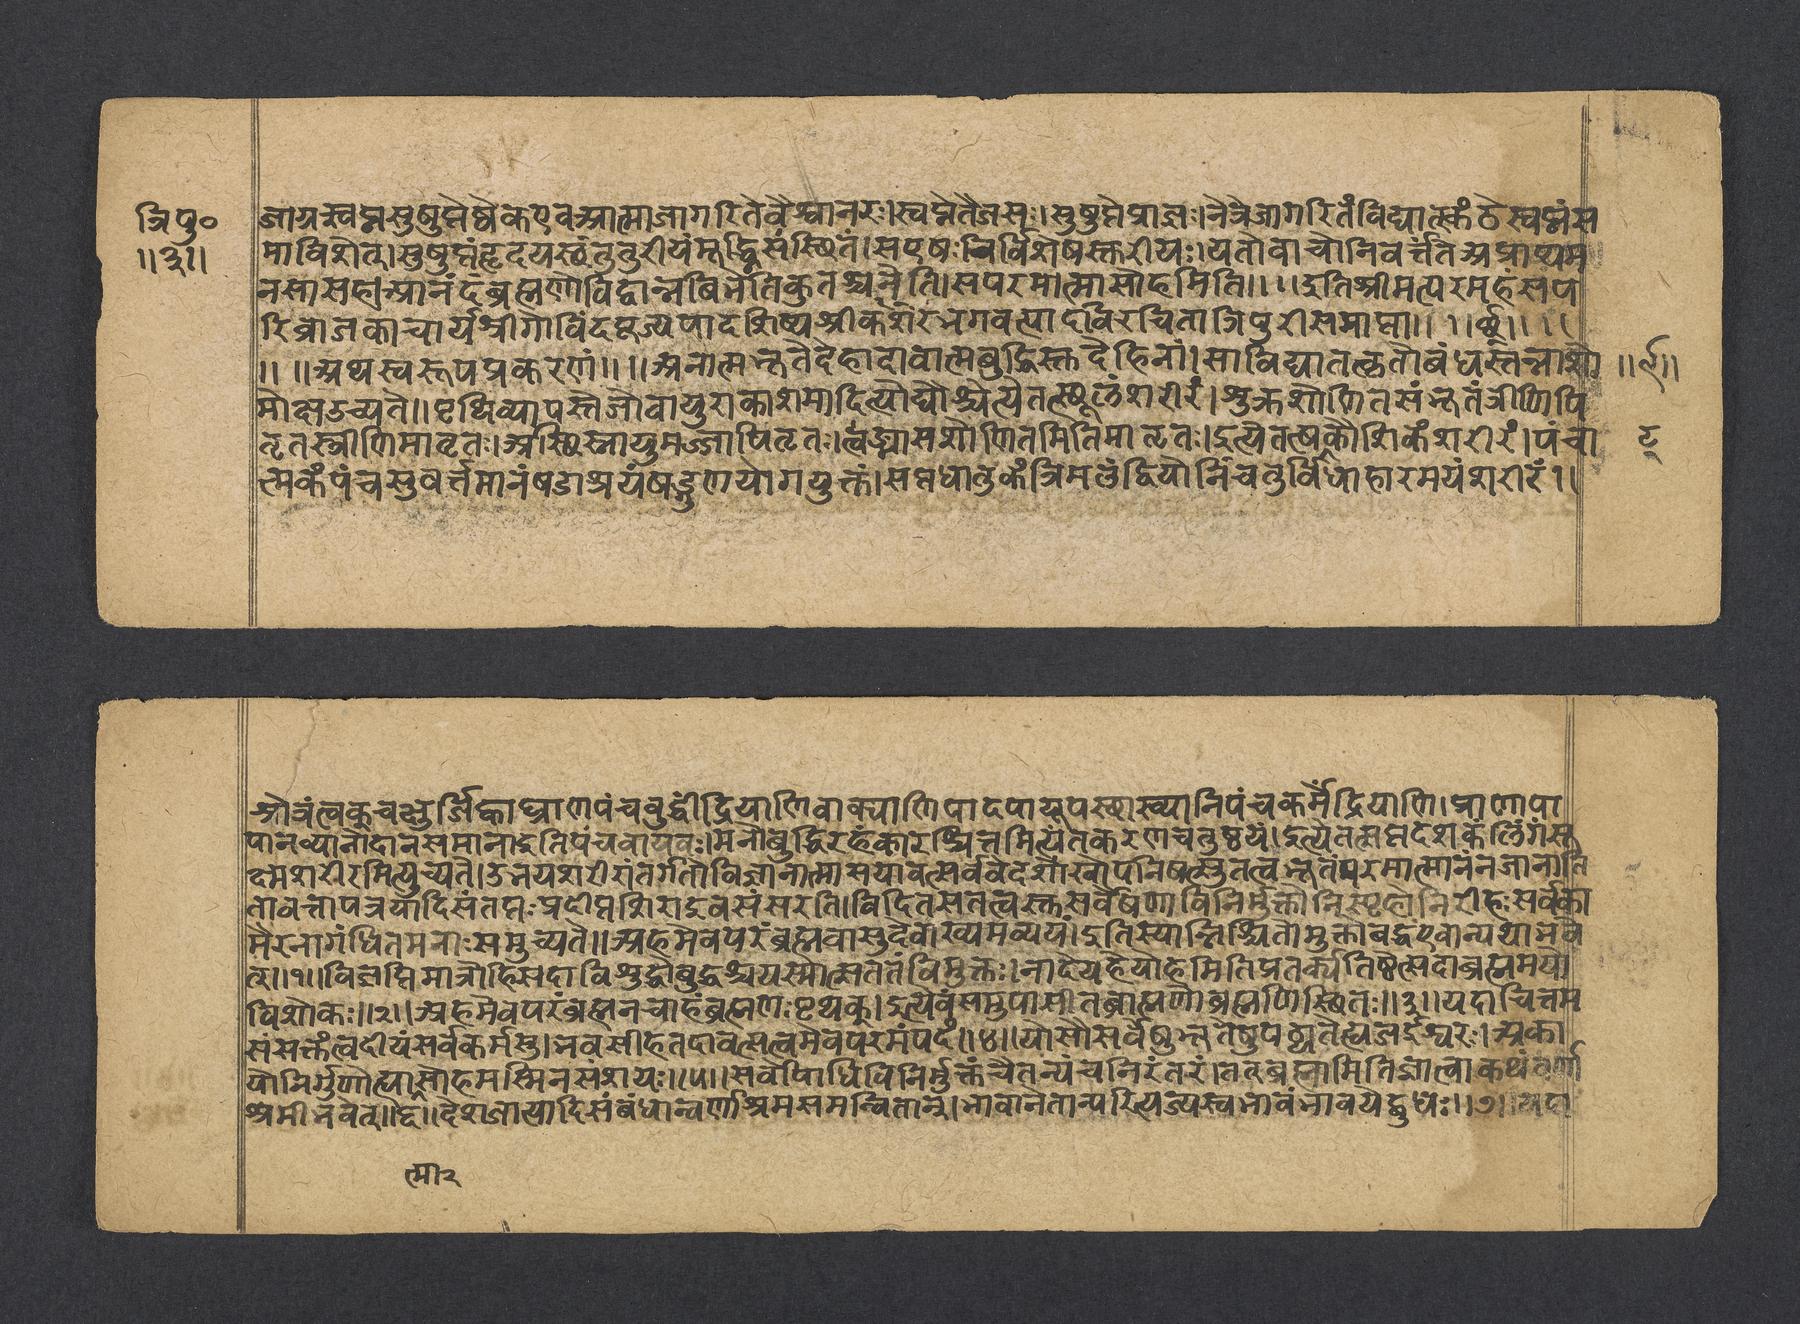 त्रिपु०
॥३॥
जाग्रत्स्वप्नसुषुप्तेष्वेकएवआत्माजागरितेवैश्वानरः।स्वप्नेतैजसः।सुषुप्तेप्राज्ञः।नेत्रेजागरितंविद्यात्कंठेस्वप्नंस
माविशेत्।सुषुप्तंहृदयस्थंतुतुरीयंमूर्द्ध्निसंस्थितं।सएषःनिर्विशेषस्तुरीयः।यतोवाचोनिवर्त्तंतेअप्राप्यम
नसासह।आनंदंब्रह्मणोविद्वान्नबिभेतिकुतश्चनेति।सपरमात्मासोहमिति॥॥इतिश्रीमत्परमहंसप
रिव्राजकाचार्यश्रीगोविंदपूज्यपादशिष्यश्रीशंकरभगवत्पादविरचितात्रिपुरीसमाप्ता॥
॥॥अथस्वरूपप्रकरणं॥॥अनात्मभूतेदेहादावात्मबुद्धिस्तुदेहिनां।साविद्यातत्कृतोबंधस्तन्नाशो
मोक्षउच्यते॥पृथिव्यापस्तेजोवायुराकाशमादित्योद्यौश्चेत्येतत्स्थूलंशरीरं।शुक्रशोणितसंभूतंत्रीणिपि
तृतस्त्रीणिमातृतः।अस्थिस्नायुमज्जापितृतः।त्वङ्मांसशोणितमितिमातृतः।इत्येतत्षट्कौशिकंशरीरं।पंचा
त्मकंपंचसुवर्त्तमानंषडाश्रयंषड्गुणयोगयुक्तं।सप्तधातुकंत्रिमलंद्वियोनिंचतुर्विधाहारमयंशरीरं१।
श्रोत्रंत्वक्चक्षुर्जिह्वाघ्राणपंचबुद्धींद्रियाणिवाक्पाणिपादपायूपस्थाख्यानिपंचकर्मेंद्रियाणि।प्राणापा
पानव्यानोदानसमानाइतिपंचवायवः।मनोबुद्धिरहंकारश्चित्तमित्यंतकरणचतुष्टयं।इत्येतत्सप्तदशकंलिंगंसू
क्ष्मशरीरमित्युच्यते।उभयशरीरांतर्गतोविज्ञानात्मासयावत्सर्ववेदेशाखोपनिषत्सुतत्वभूतंपरमात्मानंनजानाति
तावत्तापत्रयादिसंतप्तःप्रदीप्तशिराइवसंसरति।विदितसतत्वस्तुसर्वेषणाविनिर्मुक्तोनिस्पृहोनिरीहःसर्वका
मैरनागंधितमनाःसमुच्यते॥अहमेवपरंब्रह्मवासुदेवाख्यमव्ययं।इतिस्यान्निश्चितोमुक्तोबद्धएवान्यथाभवे
त्॥१॥विज्ञप्तिमात्रोहिसदाविशुद्धोबुद्धश्चयस्मात्सततंविमुक्तः।नादेयहेयोहमितिप्रतर्क्यतिष्ठेत्सदाब्रह्ममयो
विशोकः॥२॥अहमेवपरंब्रह्मनचाहंब्रह्मणःपृथक्।इत्येवंसमुपासीतब्राह्मणोब्रह्मणिस्थितः॥३॥यदाचित्तम
संसक्तंत्वदीयंसर्वकर्मसु।भवसीहतदावत्सत्वमेवपरमंपदं॥४॥योसौसर्वेषुभूतेषुपठ्यतेह्यजईश्वरः।अका
योनिर्गुणोह्यात्मासोहमस्मिनसंशयः॥५॥सर्वोपाधिविनिर्मुक्तंचैतन्यंचनिरंतरं।तत्ब्रह्मामितिज्ञात्वाकथंवर्णा
श्रमीभवेत्॥६॥देशजात्यादिसंबंधान्वर्णाश्रमसमन्वितान्।भावानेतान्परित्यज्यस्वभावंभावयेद्बुधः॥७॥यदा
त्मा२